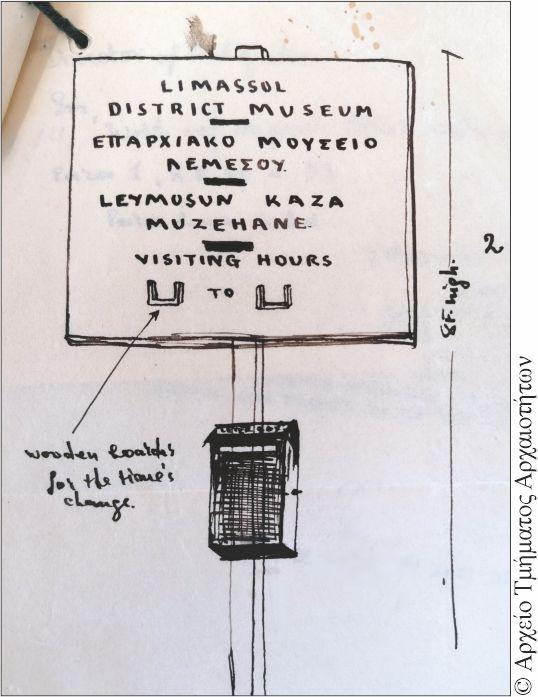 LIMASSOL
DISTRICT MUSEUM
ΕΠΑΡΧΙΑΚΟ ΜΟΥΣΕΙΟ
ΛΕΜΕΣΟΥ.
LEYMOSUN KAZA
MUZEHANE
VISITING HOURS
TO
wooden boards
for the time's
change.
8F. high.
2
© Αρχείο Τμήματος Αρχαιοτήτων